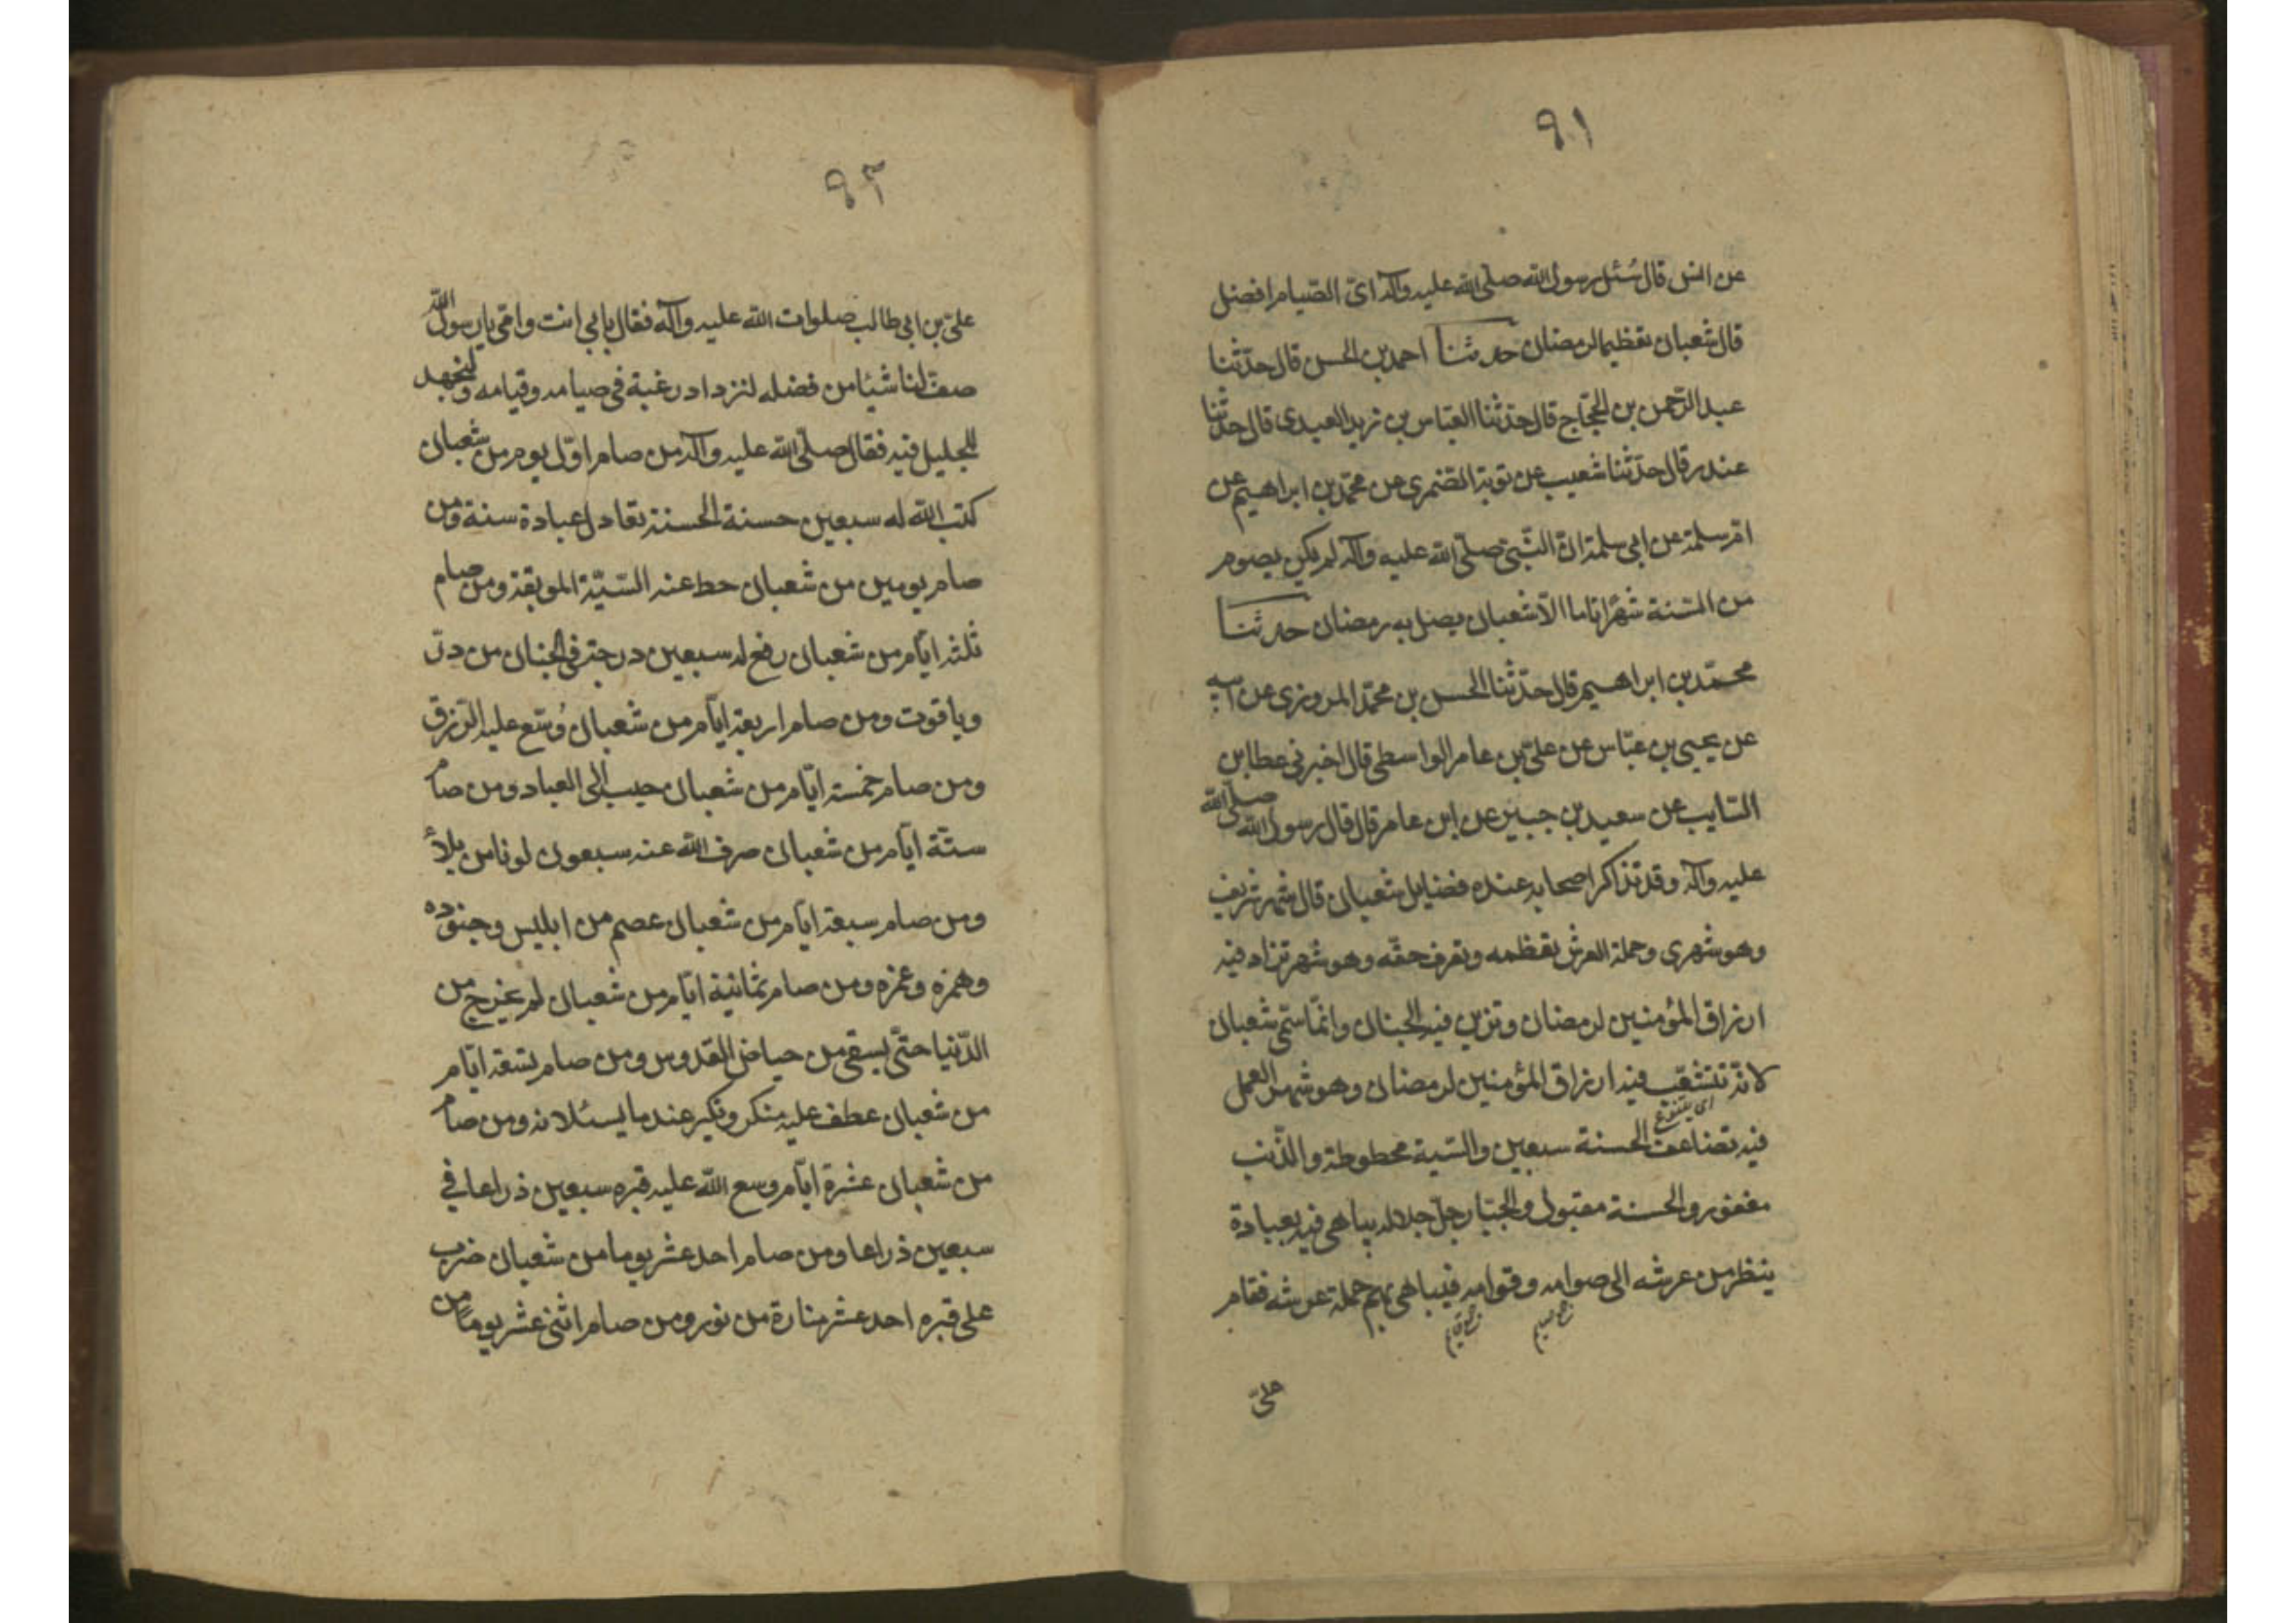 ٩١
عن انس قال سُئل رسول الله صلّى الله عليه وآله اىّ الصّيام افضل
قال شعبان تعظيما لرمضان حدثنا احمد بن الحسن قال حدّثنا
عبد الرّحمن بن الحجّاج قال حدّثنا العبّاس بن يزيد العبدى قال حدّثنا
غندر قال حدّثنا شعيب عن توبة العنبرى عن محمّد بن ابراهيم عن
امّ سلمة عن ابى سلمة انّ النّبىّ صلّى الله عليه وآله لم يكن يصوم
من السّنة شهرًا تاما الّا شعبان يصل به رمضان حدثنا
محمّد بن ابراهيم قال حدّثنا الحسن بن محمّد المروزى عن ابيه
عن يحيى بن عبّاس عن علىّ بن عامر الواسطى قال اخبرنى عطا بن
السّايب عن سعيد بن جبير عن ابن عامر قال قال رسول الله صلّى الله
عليه وآله وقد تذاكر اصحابه عنده فضايل شعبان قال شهر شريف
وهو شهرى وحملة العرش تعظمه وتعرف حقّه وهو شهر تزاد فيه
ارزاق المؤمنين لرمضان وتزين فيه الجنان وانّما سمّى شعبان
لانّه تتشعّب فيه ارزاق المؤمنين لرمضان وهو شهر العمل
اى يتنوع
فيه تضاعف الحسنة سبعين والسّيئة محطوطة والذّنب
مغفور والحسنة مقبول والجبّار جلّ جلاله يباهى فيه بعباده
ينظر من عرشه الى صوامه وقوامه فيباهى بهم حملة عرشه فقام
علىّ
٩٢
علىّ بن ابى طالب صلوات الله عليه وآله فقال بابى انت وامّى يا رسول الله
صف لنا شيئا من فضله لنزداد رغبة فى صيامه وقيامه ولنجهد
للجليل فيه فقال صلّى الله عليه وآله من صام اوّل يوم من شعبان
كتب الله له سبعين حسنة الحسنة تعادل عبادة سنة ومن
صام يومين من شعبان حط عنه السّيئة الموبقة ومن صام
ثلثة ايّام من شعبان رفع له سبعين درجة فى الجنان من درّ
وياقوت ومن صام اربعة ايّام من شعبان وُسّع عليه الرّزق
ومن صام خمسة ايّام من شعبان حبب الى العباد ومن صام
ستّة ايّام من شعبان صرف الله عنه سبعون لونا من بلأ
ومن صام سبعة ايّام من شعبان عصم من ابليس وجنوده
وهمزه وغمزه ومن صام ثمانية ايّام من شعبان لم يخرج من
الدّنيا حتّى يسقى من حياض القدوس ومن صام تسعة ايّام
من شعبان عطف عليه منكر ونكير عند ما يسئلانه ومن صام
من شعبان عشرة ايّام وسع الله عليه قبره سبعين ذراعا فى
سبعين ذراعا ومن صام احد عشر يوما من شعبان ضرب
على قبره احد عشر منارة من نور ومن صام اثنى عشر يومًا من